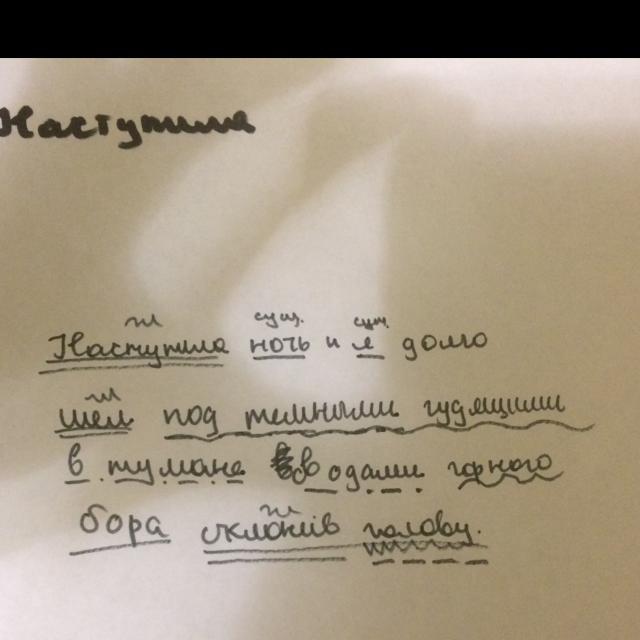 Наступила
гл
сущ.
сущ.
Наступила ночь и я долго
гл
шел под темными гудящими
в тумане водами горного
гл
бора склонив голову.